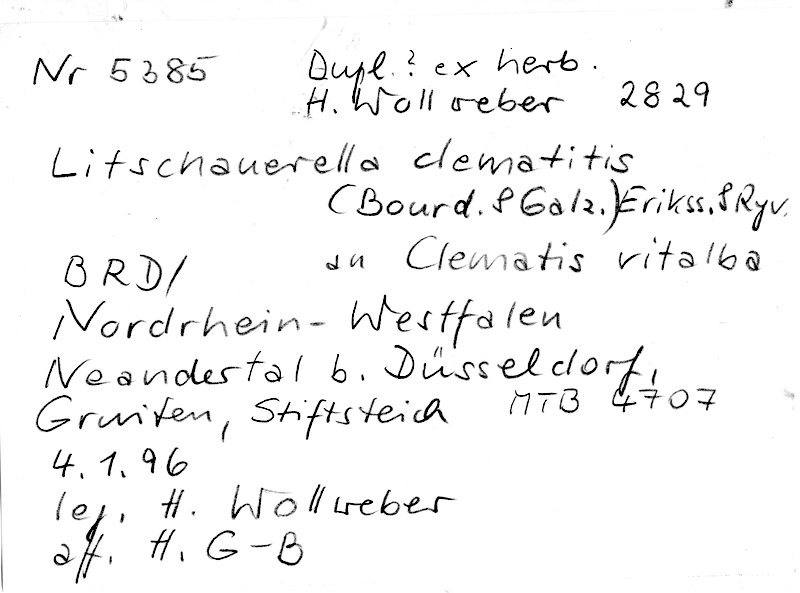 Nr 5385 Dupl.? ex herb.
H. Wollweber 2829
Litschauerella clematitis
(Bourd. & Galz.) Erikss. & Ryv.
BRD/ an Clematis vitalba
Nordrhein-Westfalen
Neandertal b. Düsseldorf,
Gruiten, Stiftsteich MTB 4707
4.1.96
leg. H. Wollweber
aff. H. G-B